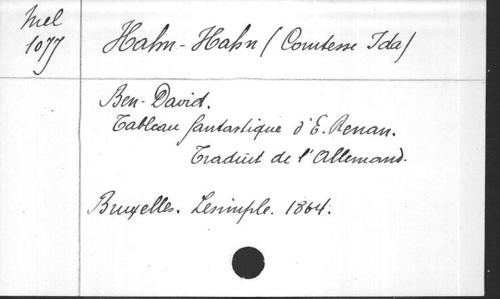 Mel
1077
Hahn-Hahn (Comtesse Ida)
Ben-David.
Tableau fantastique d'E. Renan.
Traduit de l'Allemand.
Bruxelles. Lesimple. 1864.